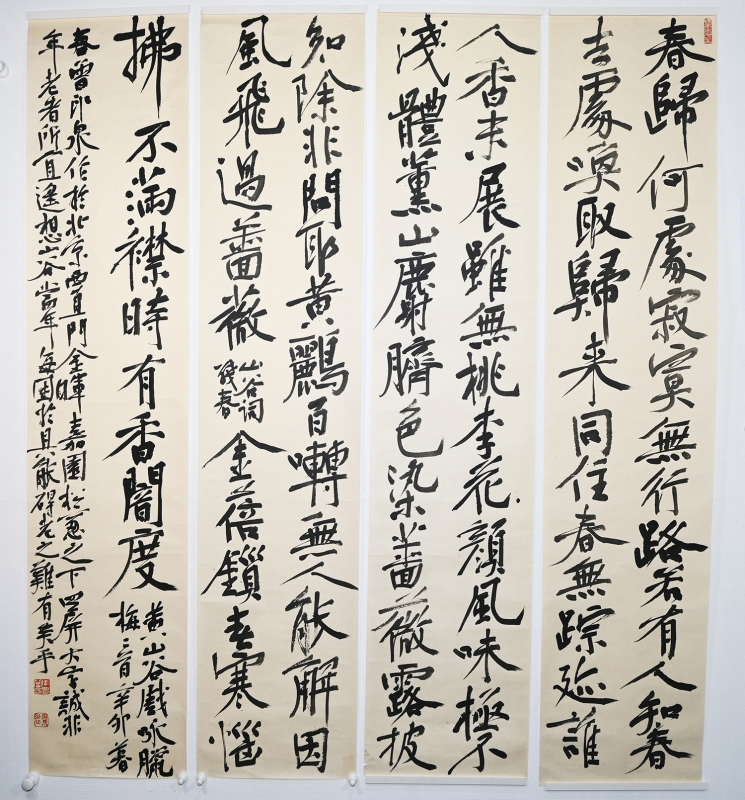 春歸何處寂寞無行路若有人知春
去處喚取歸来同住春無踪迹誰
人香未展雖無桃李花顏風味極不
淺體薰山麝臍色染薔薇露披
知除非問取黃鸝百囀無人能解因
風飛過薔薇
山谷詞
春
金蓓鎖春寒惱
拂不滿襟時有香闇度
黃山谷戲咏臘
梅二首辛卯暮
春曾印泉作於北京西直門金暉嘉園松窗之下四屏大字誠非
年老者所宜遙想山谷當年每困於具能碍老之難有美乎